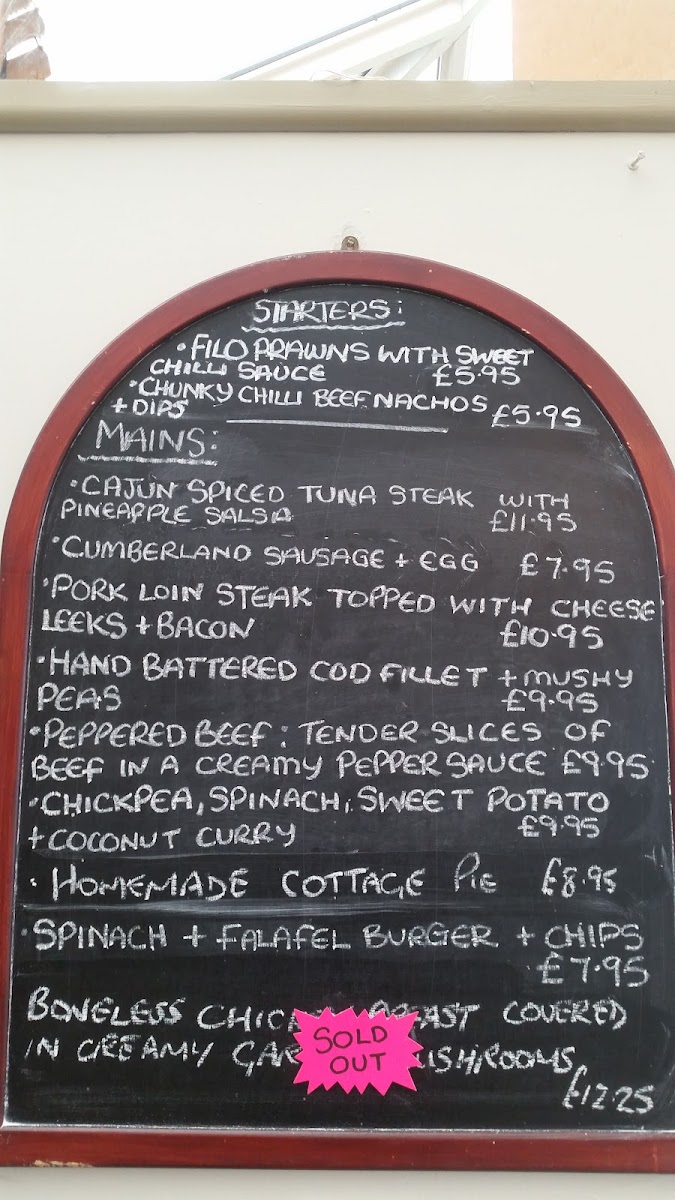 STARTERS:
• FILO PRAWNS WITH SWEET
CHILLI SAUCE £5.95
• CHUNKY CHILLI BEEF NACHOS
+ DIPS £5.95
MAINS:
• CAJUN SPICED TUNA STEAK WITH
PINEAPPLE SALSA £11.95
• CUMBERLAND SAUSAGE + EGG £7.95
• PORK LOIN STEAK TOPPED WITH CHEESE
LEEKS + BACON £10.95
• HAND BATTERED COD FILLET + MUSHY
PEAS £9.95
• PEPPERED BEEF: TENDER SLICES OF
BEEF IN A CREAMY PEPPER SAUCE £9.95
• CHICKPEA, SPINACH, SWEET POTATO
+ COCONUT CURRY £9.95
• HOMEMADE COTTAGE PIE £8.95
• SPINACH + FALAFEL BURGER + CHIPS
£7.95
BONELESS COVERED
IN CREAMY
£12.25
SOLD
OUT